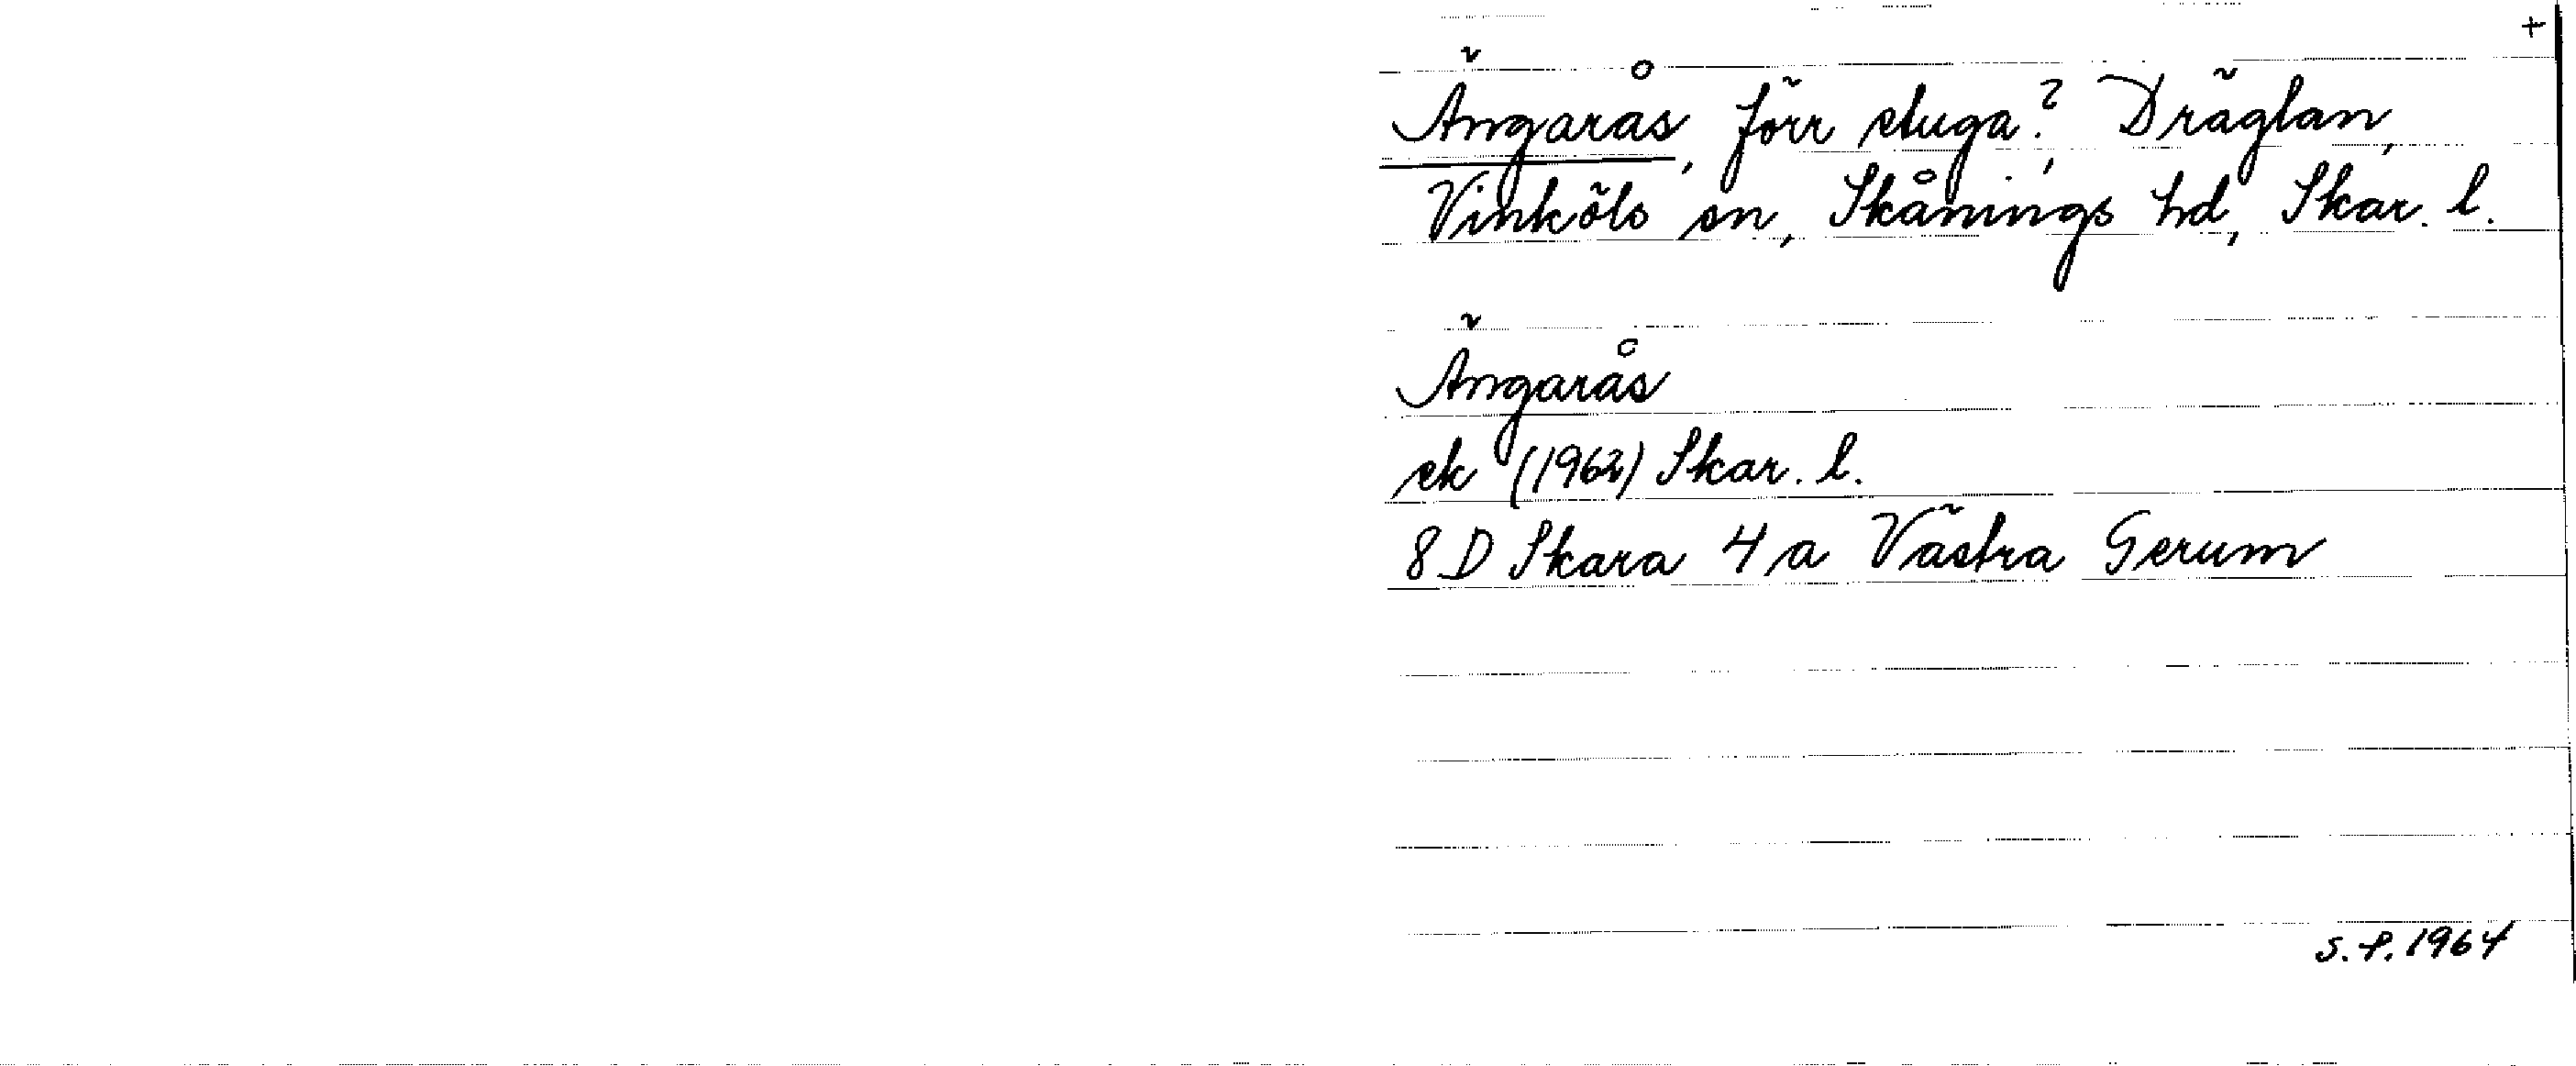 +
Ängarås, förr stuga?, Dräglan,
Vinköls sn, Skånings hd, Skar. l.
Ängarås
ek (1962) Skar. l.
8D Skara 4a Västra Gerum
S.P. 1964